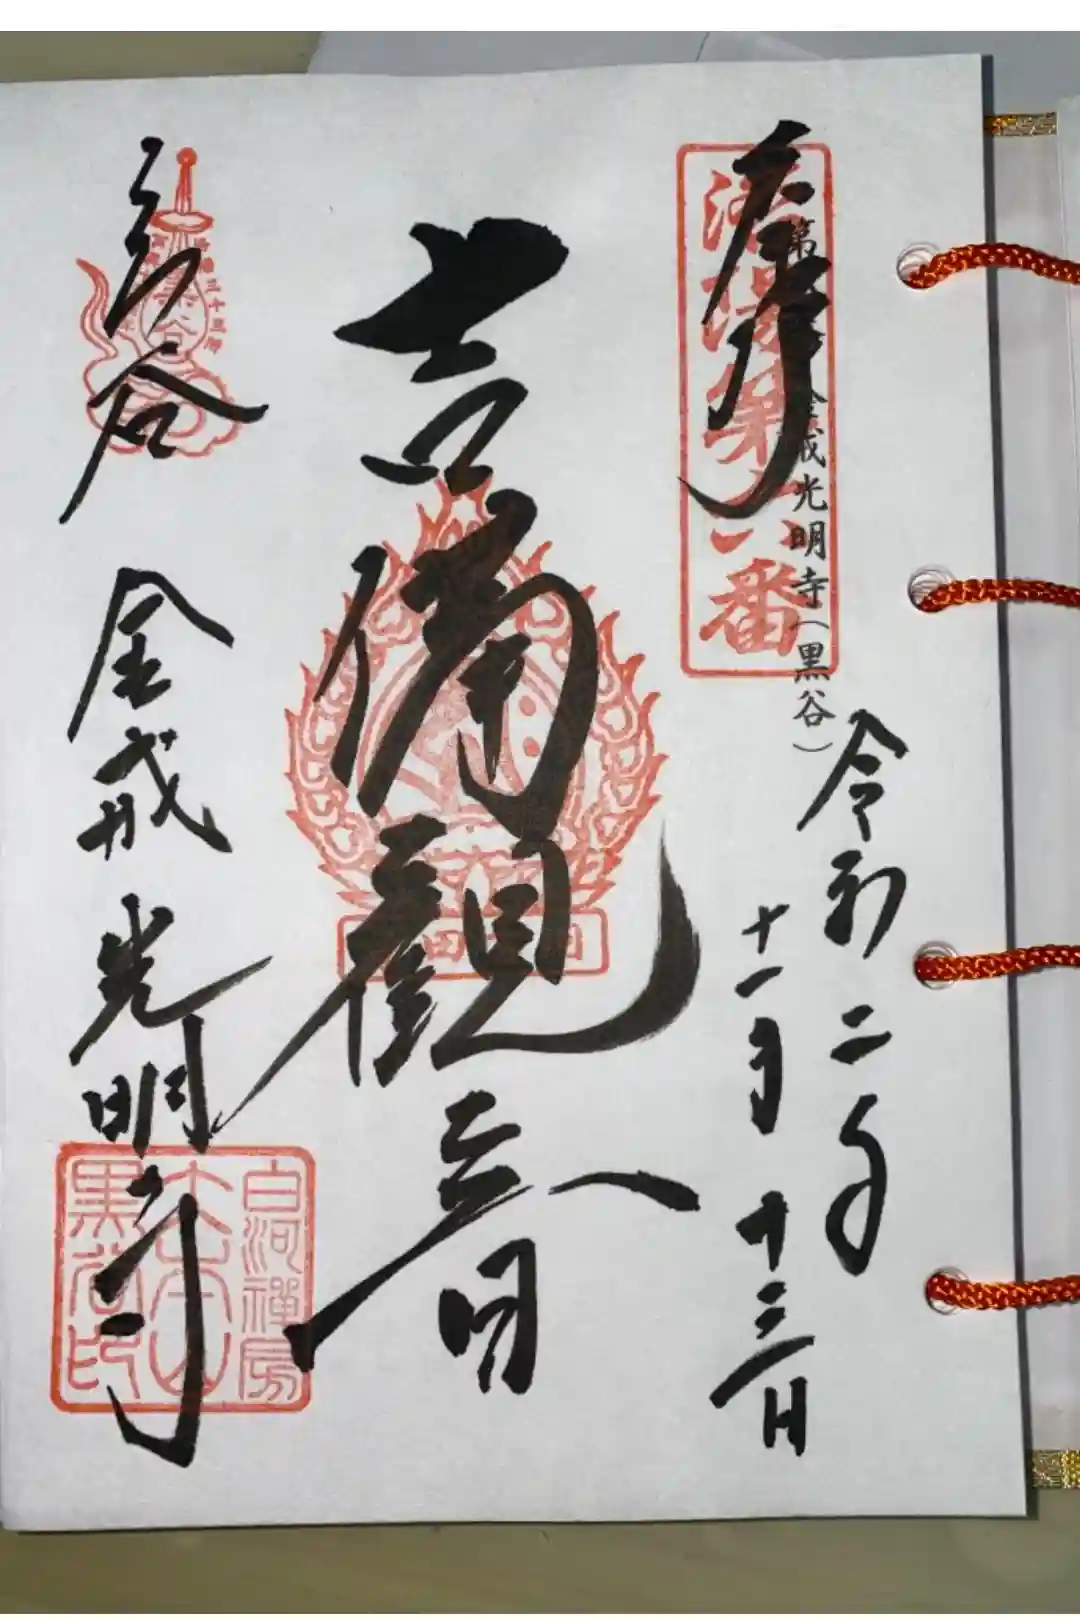 奉拝
洛陽第六番
金戒光明寺(黒谷)
令和二年
十一月十三日
吉備観音
黒谷
金戒光明寺
白河禅房
大本山
黒谷印